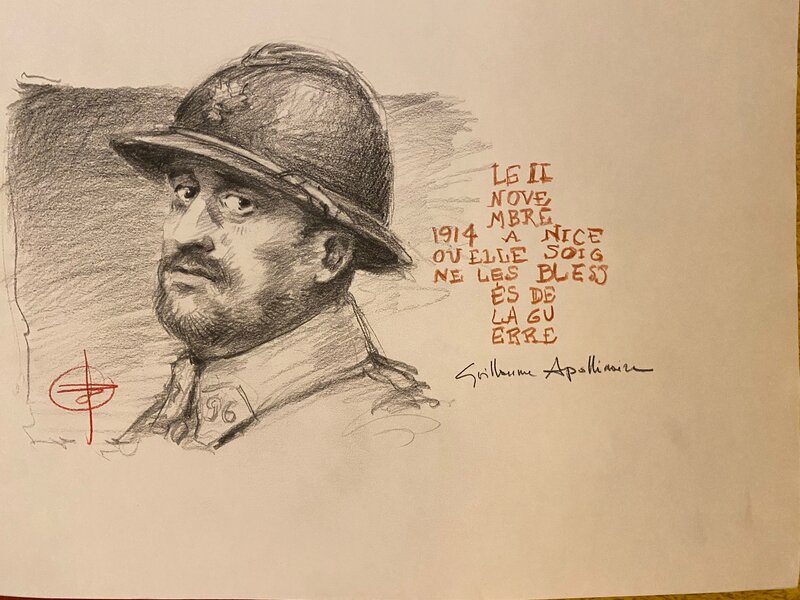 LE II
NOVE
MBRE
1914 A NICE
OU ELLE SOIG
NE LES BLESS
ÉS DE
LA GU
ERRE
Guillaume Apollinaire
96